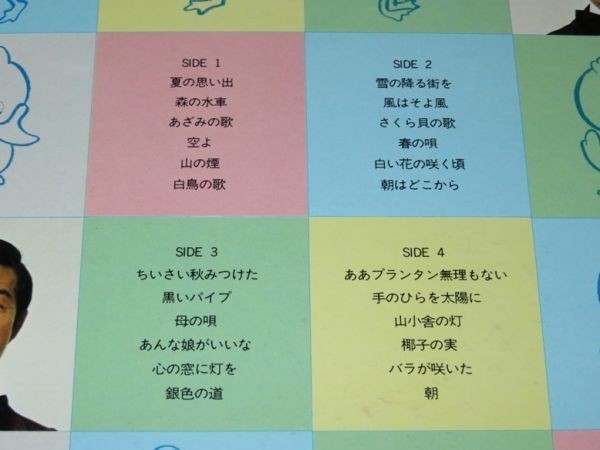 SIDE 1
夏の思い出
森の水車
あざみの歌
空よ
山の煙
白鳥の歌
SIDE 2
雪の降る街を
風はそよ風
さくら貝の歌
春の唄
白い花の咲く頃
朝はどこから
SIDE 3
ちいさい秋みつけた
黒いパイプ
母の唄
あんな娘がいいな
心の窓に灯を
銀色の道
SIDE 4
ああプランタン無理もない
手のひらを太陽に
山小舎の灯
椰子の実
バラが咲いた
朝